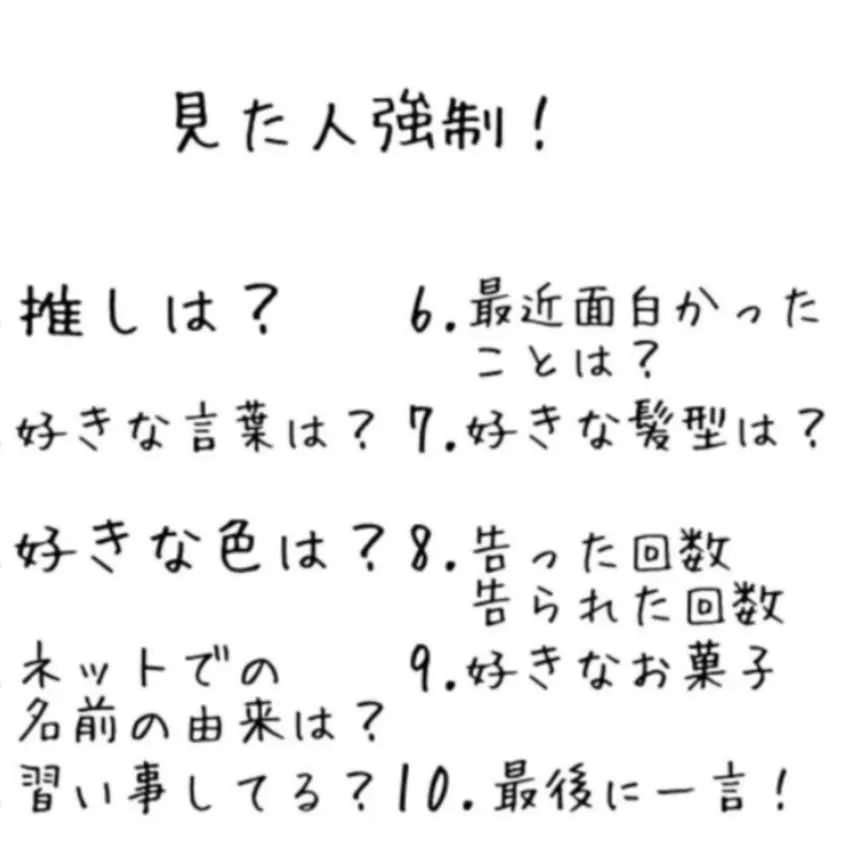 見た人強制!
推しは?
好きな言葉は?
好きな色は?
ネットでの
名前の由来は?
習い事してる?
6.最近面白かった
ことは?
7.好きな髪型は?
8.告った回数
告られた回数
9.好きなお菓子
10.最後に一言!